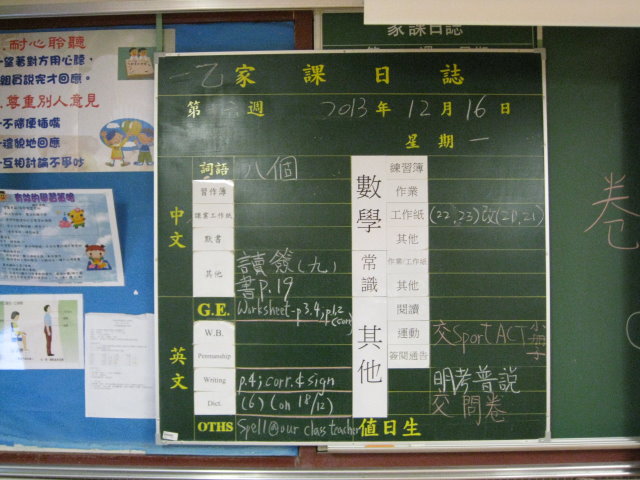 耐心聆聽
望著對方用心聽,
視員説完才回應。
尊重別人意見
不隨便插嘴
禮貌地回應
互相討論不爭吵
家課日誌
一乙家課日誌
第 週 2013年12月16日
星期一
中文
詞語 八個
習作簿
課業工作紙
默書
其他 讀簽(九)
書p.19
英文
G.E. Worksheet-p3.4,p12
(corr)
W.B.
Penmanship
Writing p.4; corr.&sign
Dict. (6) (on 18/12)
OTHS Spell@our class teacher
數學
練習簿
作業
工作紙 (22,23)改(20,21)
其他
常識
作業/工作紙
其他
其他
閱讀
運動 交Sport ACT小冊子
簽閱通告
明考普說
交問卷
值日生
卷